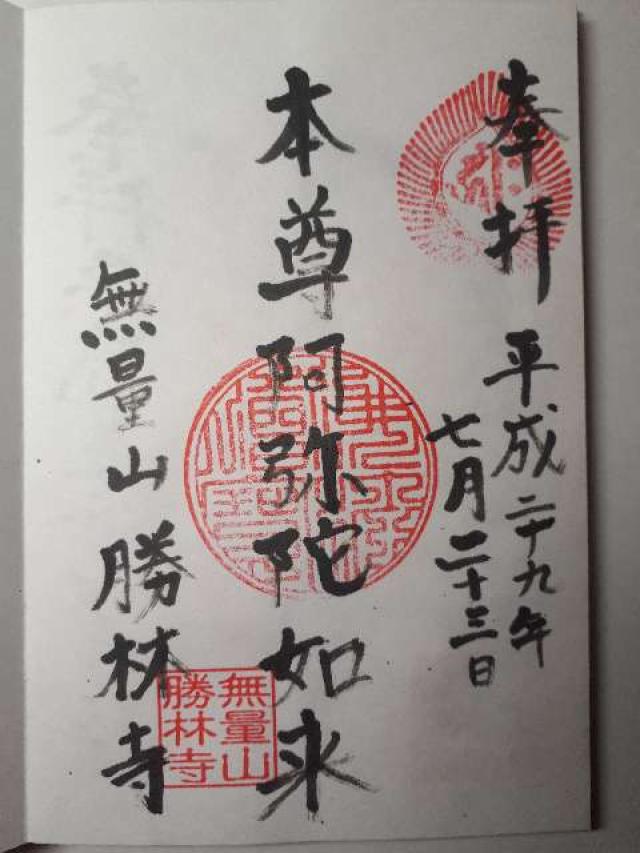 奉拝
平成二十九年
七月二十三日
本尊阿弥陀如来
無量山勝林寺
無量山
勝林寺